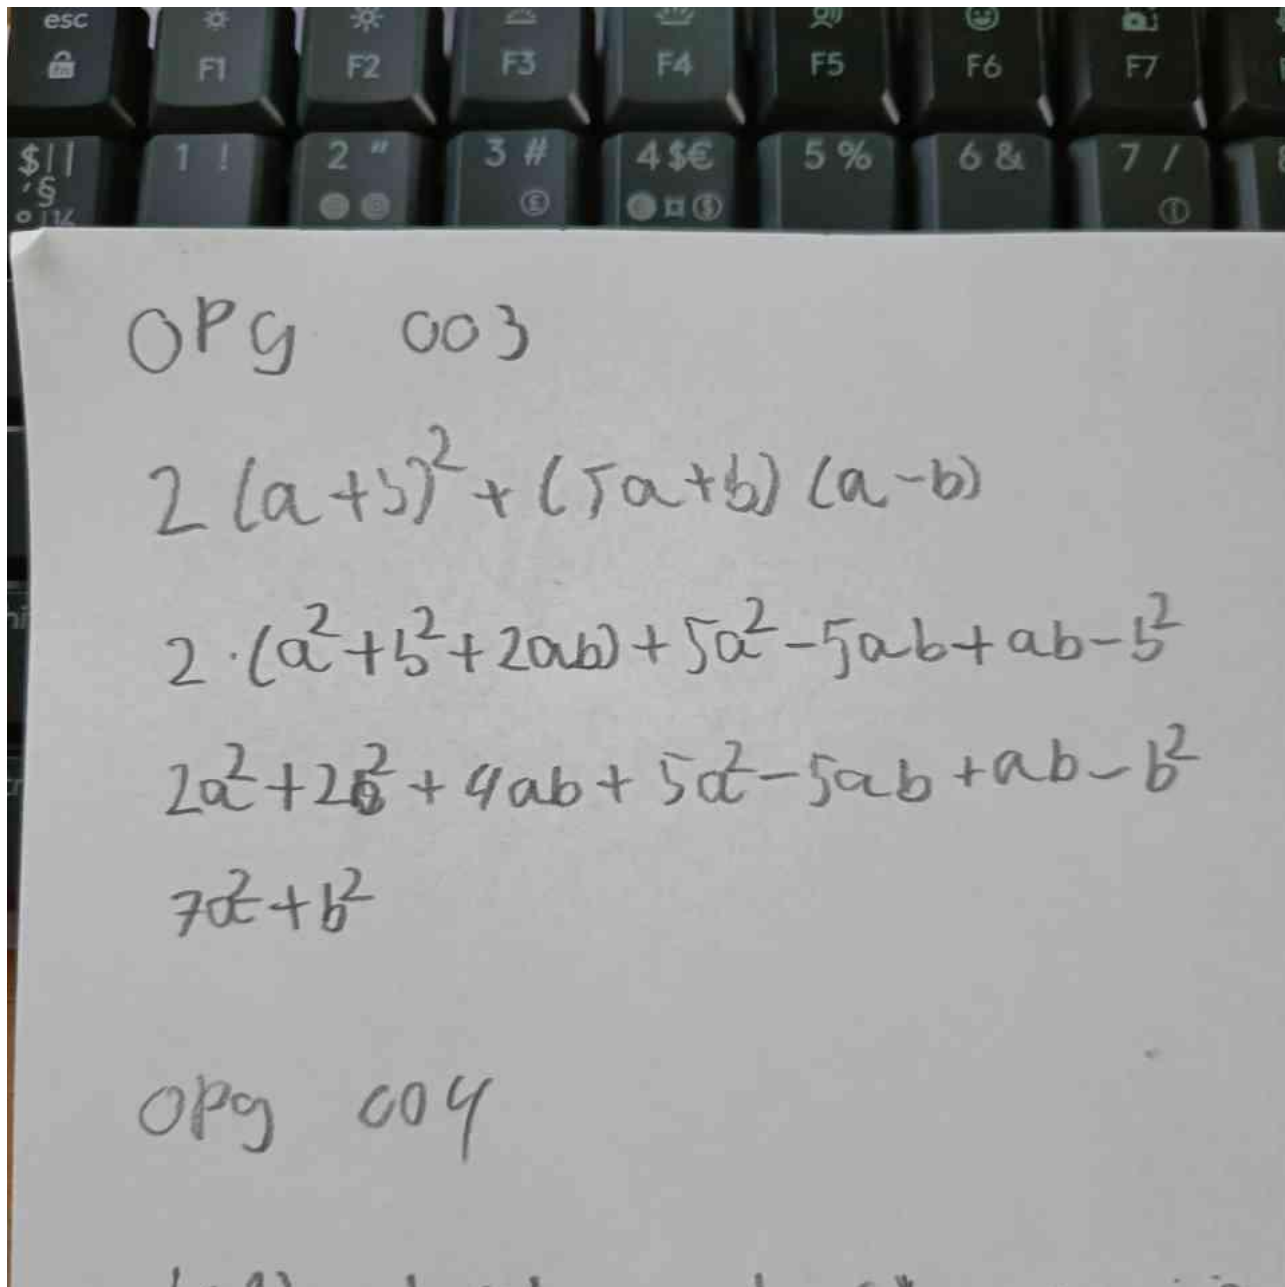 esc
F1 F2 F3 F4 F5 F6 F7
1 ! 2 " 3 # 4 $€ 5 % 6 & 7 /
OPg 003
2 (a+b)² + (5a+b) (a-b)
2·(a²+b²+2ab)+5a²-5ab+ab-b²
2a²+2b²+4ab+5a²-5ab+ab-b²
7a²+b²
OPg 004